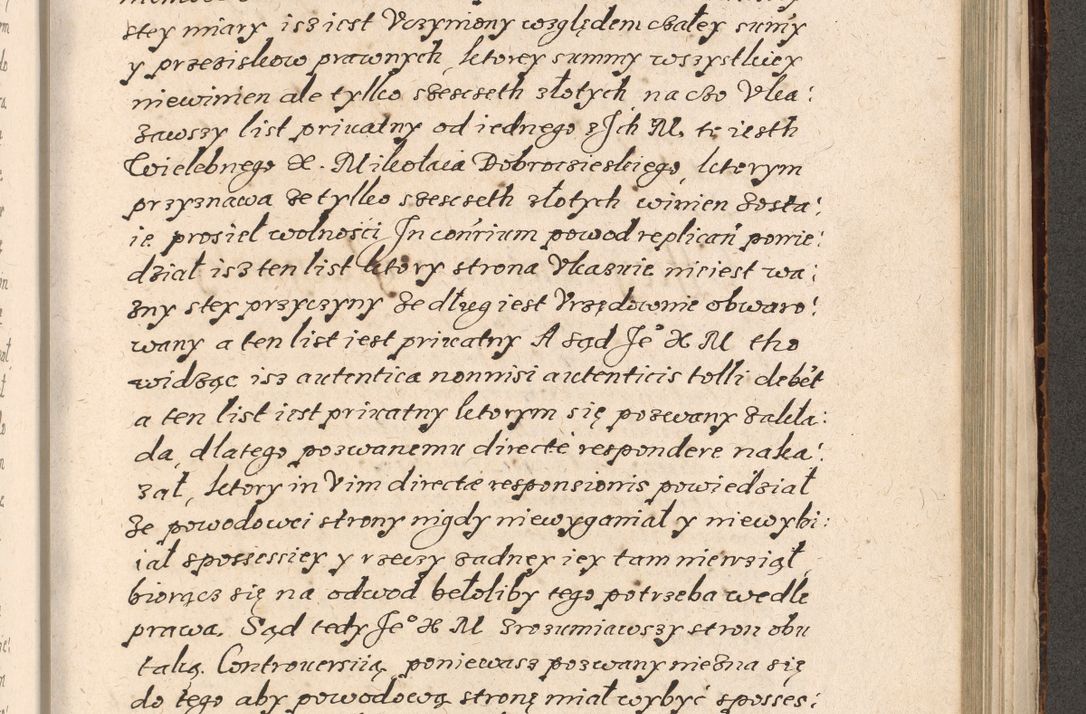 stey miary isz iest Vczyniony względem czałey sumy
y przeziskow prawnych, ktorey summy wszystkiey
niewinien ale tylko szescseth złotych, na czo Vka:
zawszy list priuatny od iednego z Jch M. to iesth
Wielebnego X. Mikołaia Dobroczieskiego, ktorym
przyznawa że tylko szescseth złotych winien zosta:
ie. prosieł wolnosci, In contrium powod replicań powie:
dział isz ten list ktory strona Vkazuie nie iest wa:
żny stey przyczyny że dług iest Vrzędownie obwaro:
wany a ten list iest priuatny A sąd Je° X M tho
widząc isz autentica nonnisi autenticis tolli debēt
a ten list iest priuatny ktorym się pozwany zakła:
da, dlatego pozwanemu directe respondere naka:
zał, ktory in Vim directæ responsionis powiedział
że powodowei strony nigdy niewyganiał y niewybi:
iał spossessiey y rzeczy zadney iey tam niewziął,
biorącz się na odwod bełoliby tego potrzeba wedle
prawa. Sąd tedy Je° X M zrozumiawszy stron obu
taką Controuersiią, poniewasz pozwany niezna się
do tego aby powodową stronę miał wybyć sposses: